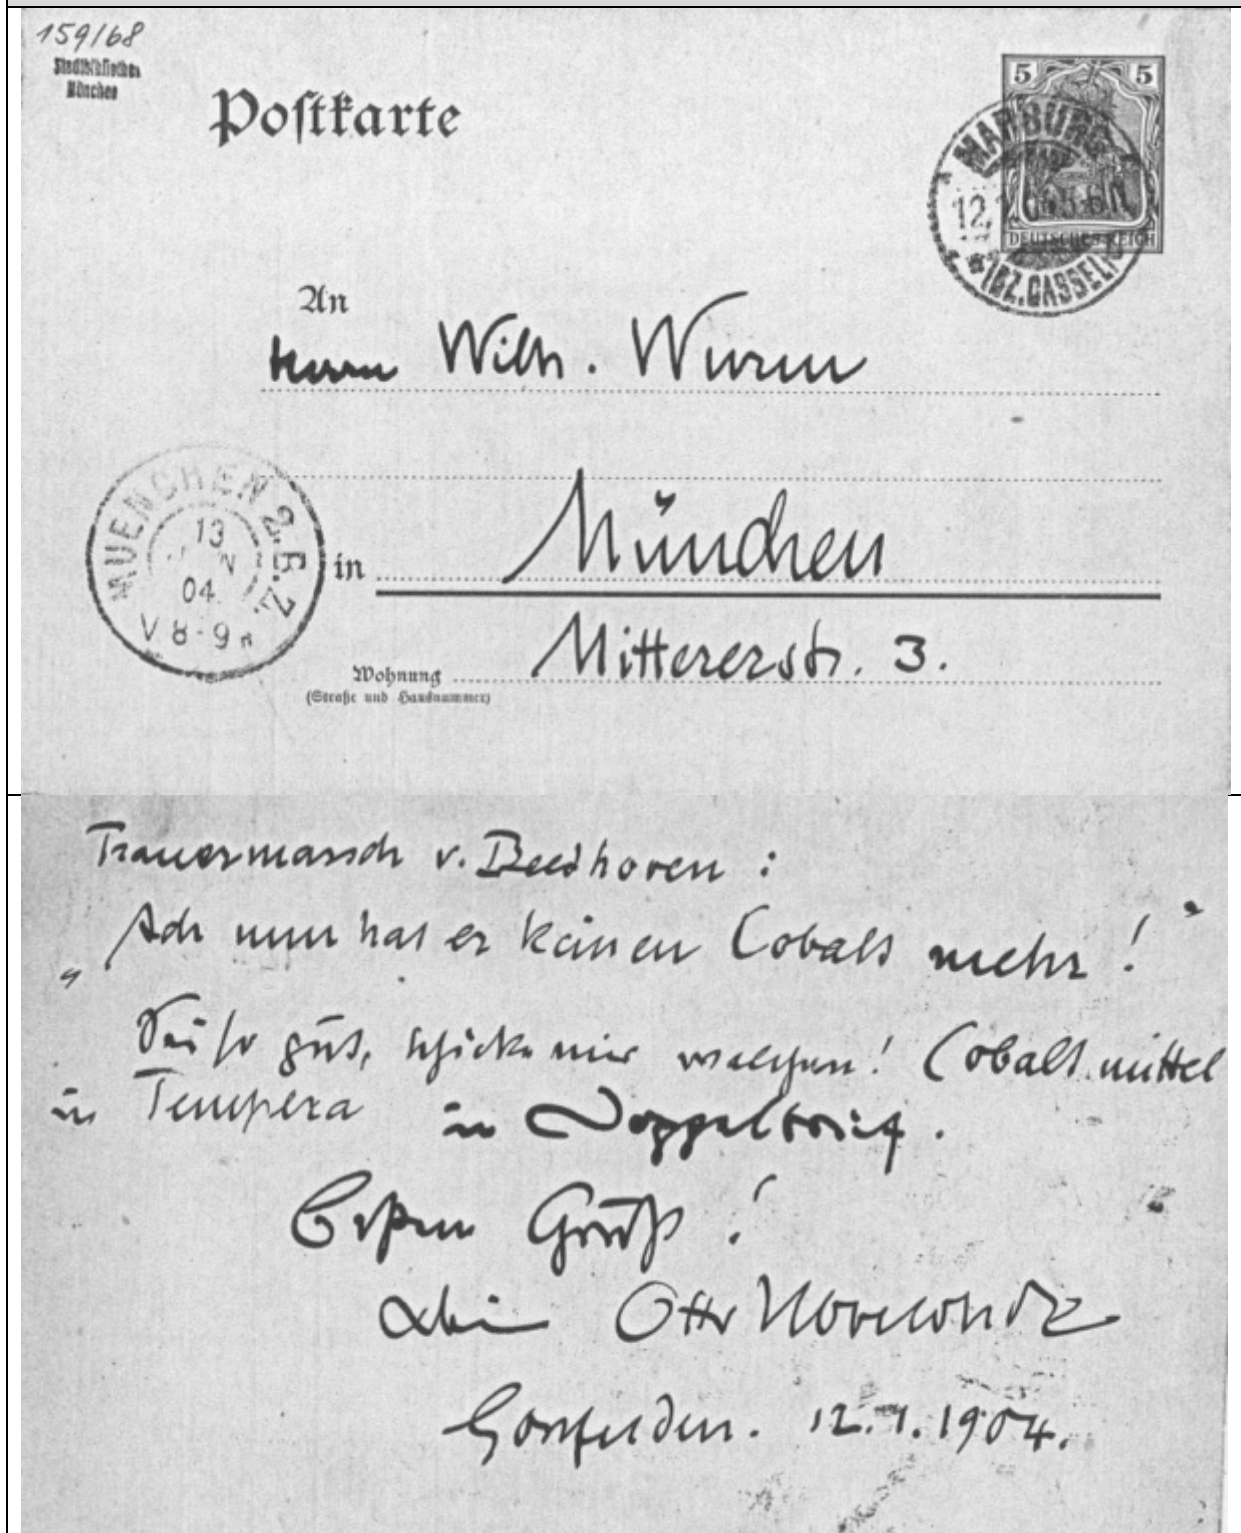 159/68
Stadtbibliothek
München
Postkarte
5 5
MARBURG
12.
DEUTSCHES REICH
*(BZ.CASSEL)*
An
Herrn Wilh. Wurm
MUENCHEN 2.B.Z.
13
04
V 8-9
in München
Wohnung Mittererstr. 3.
(Straße und Hausnummer)
Trauermarsch v. Beethoven:
„Ach nun hat er keinen Cobalt mehr!"
Sei so gut, schicke mir welchen! Cobalt mittel
in Tempera in Doppelbrief.
Besten Gruß!
dein Otto Ubbelohde
Gossfelden. 12.1.1904.